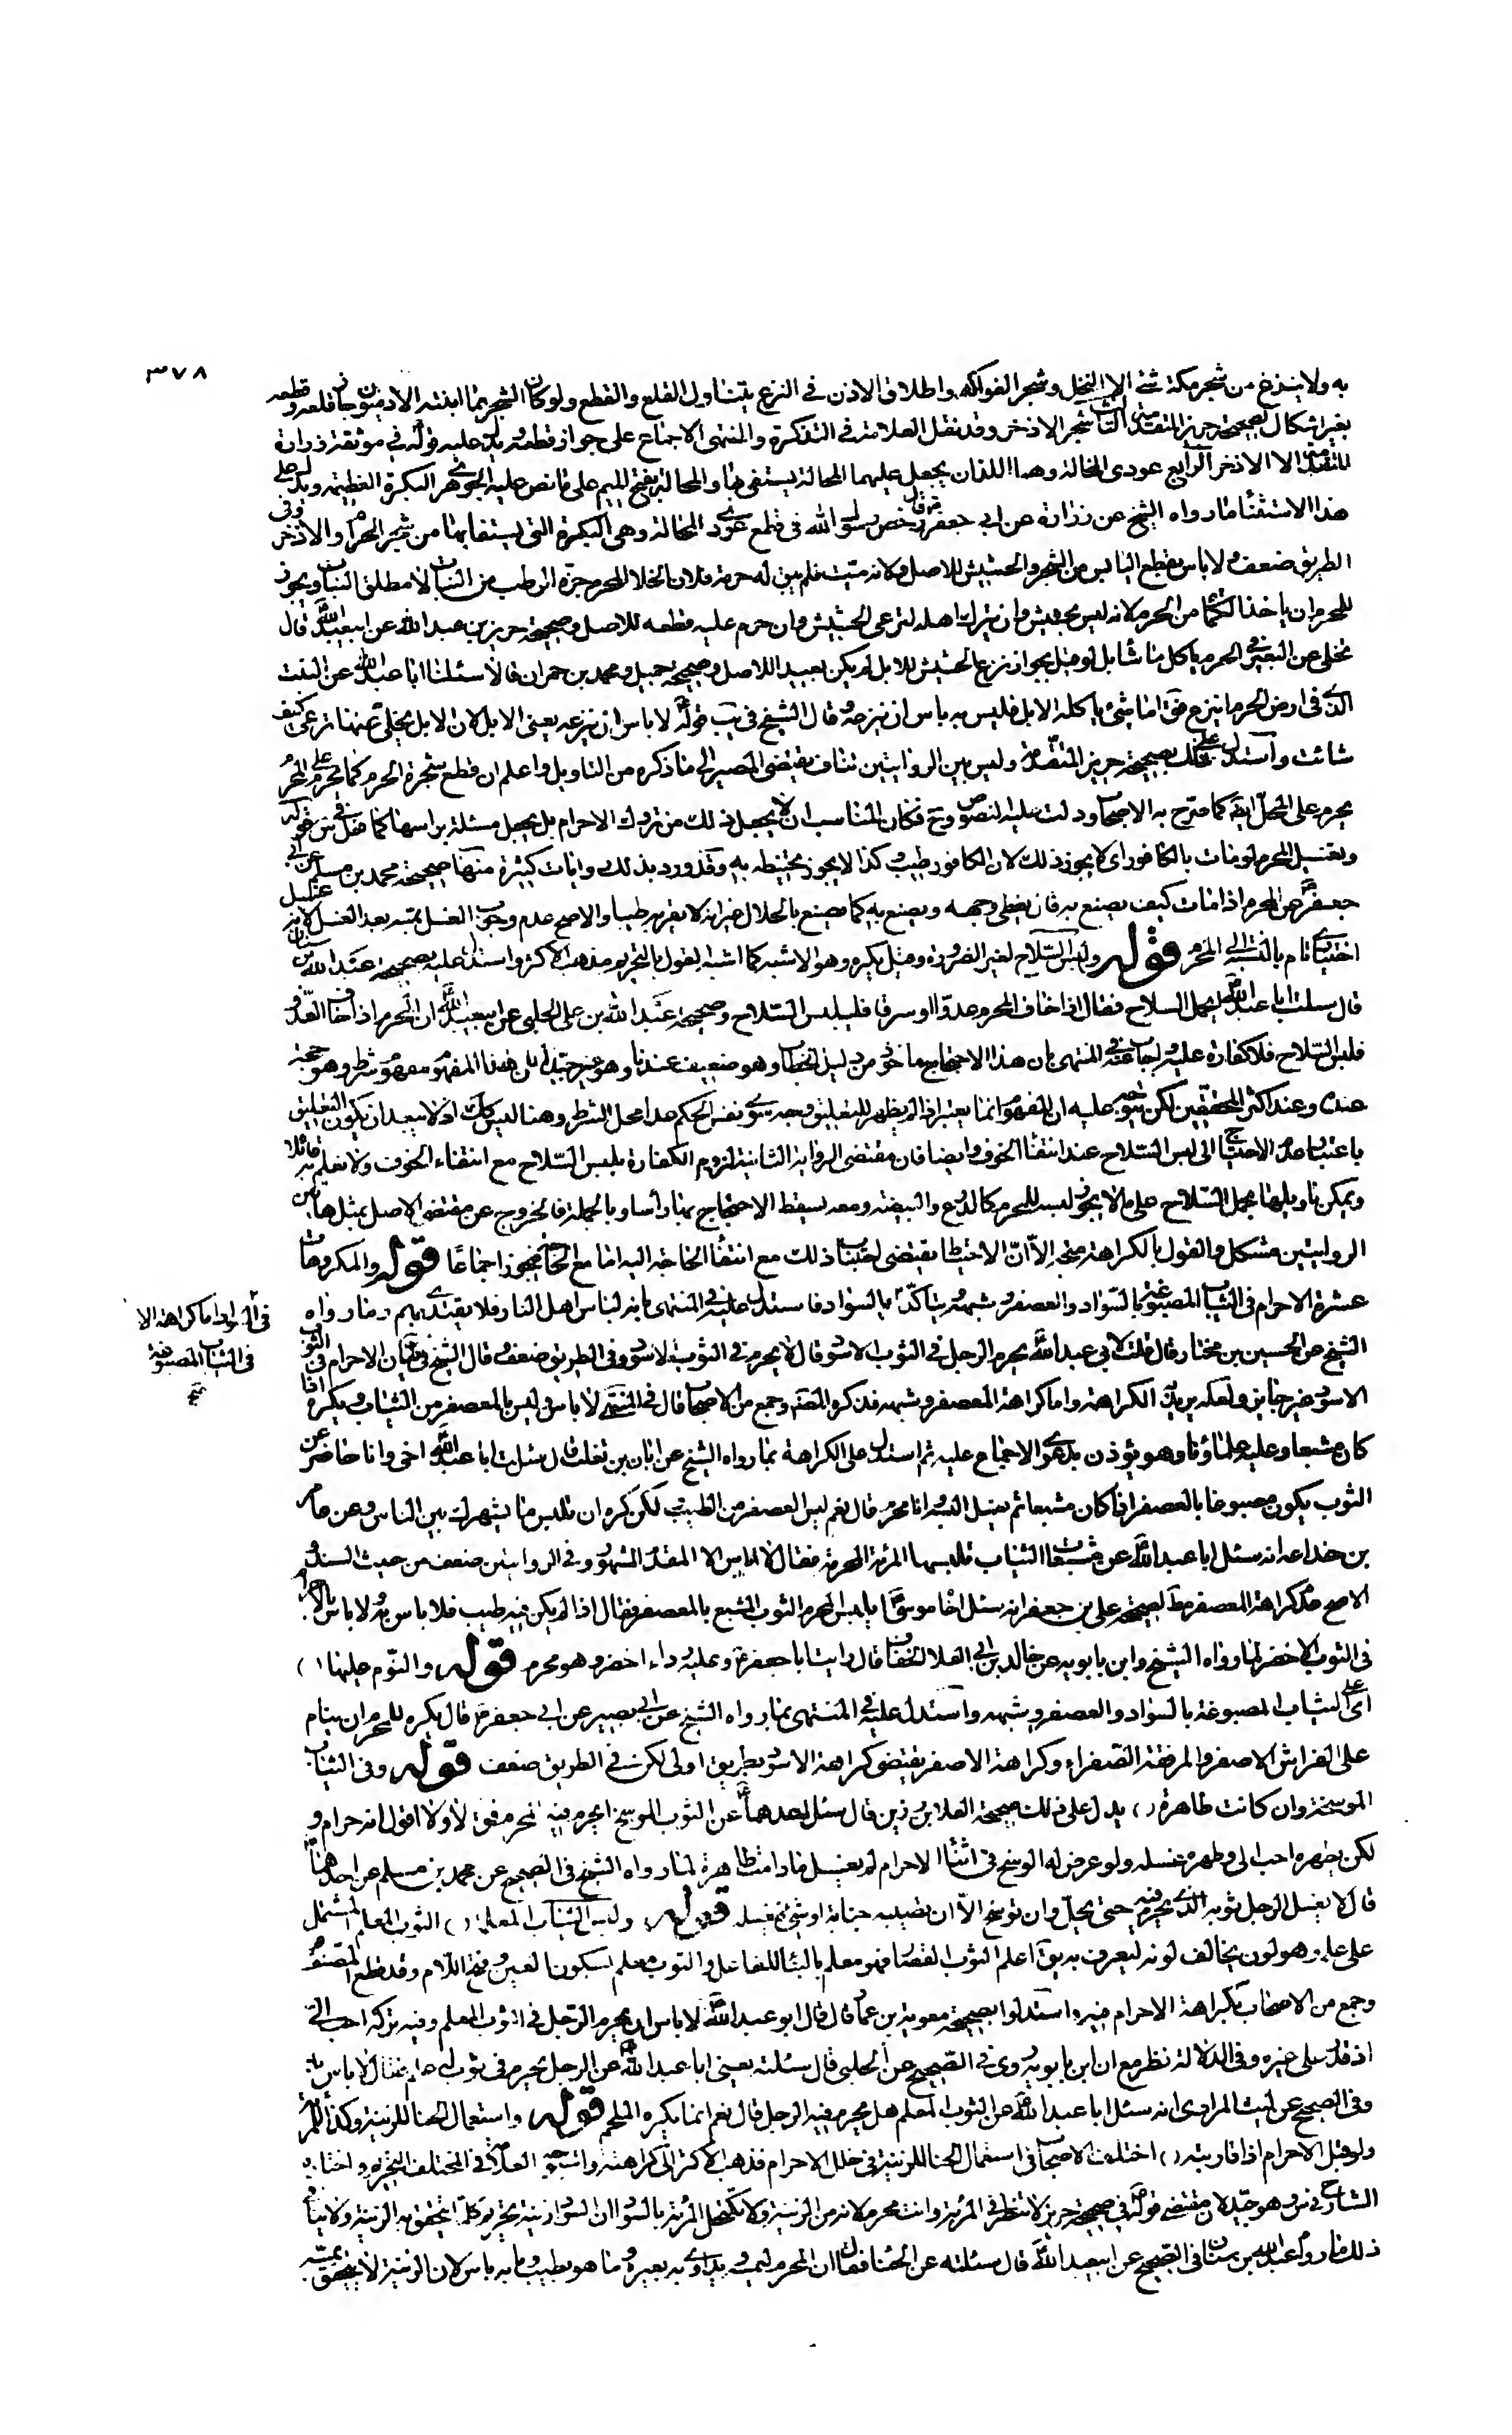 ٣٧٨
به ولا ينزع من شجر مكة شئ الا النخل وشجر الفواكه واطلاق الاذن فى النزع يتناول القلع والقطع ولو كان الشجر مما انبته الادميون جاز قلعه وقطعه
بغير اشكال لصحيحة حريز المتقدمة الثالث شجر الاذخر وقد نقل العلامة فى التذكرة والمنتهى الاجماع على جواز قطعه ويدل عليه قوله فى موثقة زرارة
المتقدمة الا الاذخر الرابع عودى المحالة وهما اللذان يجعل عليهما المحالة ليستقى بها والمحالة بفتح الميم على ما نص عليه الجوهرى البكرة العظيمة ويدل على
هذا الاستثناء ما رواه الشيخ عن زرارة عن ابى جعفر قال رخص رسول الله فى قطع عودى المحالة وهى البكرة التى يستقا بها من شجر الحرم والاذخر وفى
الطريق ضعف ولا باس بقطع اليابس من الشجر والحشيش للاصل ولانه ميت فلم يبق له حرمة ولان الخلا المحرم جزه الرطب من النبات لا مطلق النبات ويجوز
للمحرم ان ياخذ الكماة من الحرم لانه ليس بحشيش وان يترك ابله لترعى الحشيش وان حرم عليه قطعه للاصل وصحيحة حريز بن عبد الله عن ابيعبد الله قال
تخلى عن البعير فى الحرم ياكل ما شاء بل لو قيل بجواز نزع الحشيش للابل لم يكن بعيدا للاصل وصحيحة جميل ومحمد بن حمران قالا سئلنا ابا عبد الله عن النبت
الذى فى ارض الحرم اينزع فق اما شئ ياكله الابل فليس به باس ان ينزعه قال الشيخ فى يب قوله لا باس ان ينزعه يعنى الابل لان الابل يخلى عنها ترعى كيف
شائت واستدل على ذلك بصحيحة حريز المتقدمة وليس بين الروايتين تناف يقتضى المصير الى ما ذكره من التاويل واعلم ان قطع شجرة الحرم كما يحرم على المحرم
يحرم على المحل ايضا كما صرح به الاصحاب ودلت عليه النصوص وح فكان المناسب ان لا يجعل ذلك من تروك الاحرام بل يجعل مسئلة براسها كما فعل فى س قوله
وتغسيل المحرم لو مات بالكافور اى لا يجوز ذلك لان الكافور طيب وكذا لا يجوز تحنيطه به وقد ورد بذلك روايات كثيرة منها صحيحة محمد بن مسلم عن ابى
جعفر عن المحرم اذا مات كيف يصنع به قال يغطى وجهه ويصنع به كما يصنع بالحلال غير انه لا يقربه طيبا والاصح عدم وجوب الغسل بمسه بعد الغسل لانه غسل
اختيارى تام بالنسبة الى المحرم قوله ولبس السلاح لغير الضرورة وقيل يكره وهو الاشبه كما اشبه القول بالتحريم مذهب الاكثر واستدل عليه بصحيحة عبد الله بن سنان
قال سئلت ابا عبد الله ايحمل السلاح فقال اذا خاف المحرم عدوا او سرقا فليلبس السلاح وصحيحة عبد الله بن على الحلبى عن ابيعبد الله ان المحرم اذا خاف العدو
فلبس السلاح فلا كفارة عليه واجاب عنه فى المنتهى بان هذا الاحتجاج ماخوذ من دليل الخطاب وهو ضعيف عندنا وهو غير جيد لان هذا المفهوم مفهوم شرط وهو حجة
عنده وعند اكثر المحققين لكن يتوجه عليه ان المفهوم انما يعتبر اذا لم يظهر للتعليق وجه سوى نفى الحكم عدا محل الشرط وهنا ليس كك اذ لا يبعد ان يكون التعليق
باعتبار عدم الاحتياج الى لبس السلاح عند انتفاء الخوف وايضا فان مقتضى الرواية الثانية لزوم الكفارة بلبس السلاح مع انتفاء الخوف ولا نعلم به قائلا
ويمكن تاويلها بحمل السلاح على ما لا يجوز لبسه للمحرم كالدرع والبيضة ومعه يسقط الاحتجاج بها راسا وبالجملة فالخروج عن مقتضى الاصل بمثل هاتين
الروايتين مشكل والقول بالكراهة متجه الا ان الاحتياط يقتضى اجتناب ذلك مع انتفاء الحاجة اليه اما مع الحاجة فيجوز اجماعا قوله والمكروهات
عشرة الاحرام فى الثياب المصبوغة بالسواد والعصفر وشبهه ويتاكد بالسواد فاستدل عليه فى المنتهى بانه لباس اهل النار فلا يقتدى بهم وما رواه
الشيخ عن الحسين بن مختار قال قلت لابى عبد الله يحرم الرجل فى الثوب الاسود قال لا يحرم فى الثوب الاسود وفى الطريق ضعف وقال الشيخ فى ية ان الاحرام فى الثوب
الاسود غير جايز ولعله يريد الكراهة واما كراهة المعصفر وشبهه فذكره المصنف وجمع من الاصحاب قال فى المنتهى لا باس فى لبس بالمعصفر من الثياب ويكره اذا
كان مشبعا وعليه علماؤنا وهو يؤذن بدعوى الاجماع عليه ثم استدل على الكراهة بما رواه الشيخ عن ابان بن تغلب قال سئلت ابا عبد الله اخى وانا حاضر عن
الثوب يكون مصبوغا بالعصفر اذا كان مشبعا ثم يغسل البسه وانا محرم قال نعم ليس العصفر من الطيب لكن كره ان تلبس ما يشهرك بين الناس وعن عامر
بن خداعه انه سئل ابا عبد الله عن مصبغات الثياب تلبسها المرئة المحرمة فقال لا باس الا المفدم المشهور وفى الروايتين ضعف من حيث السند و
الاصح عدم كراهة المعصفر مط لصحيحة على بن جعفر انه سئل اخاه موسى يلبس المحرم الثوب المشبع بالعصفر فقال اذا لم يكن فيه طيب فلا باس به ولا باس بالاحرام
فى الثوب الاخضر لما رواه الشيخ وابن بابويه عن خالد بن ابى العلا الخفاف قال رايت ابا جعفر وعليه رداء اخضر وهو محرم قوله والنوم عليها ( )
اى على الثياب المصبوغة بالسواد والعصفر وشبهه واستدل عليه فى المنتهى بما رواه الشيخ عن ابى بصير عن ابى جعفر قال يكره للمحرم ان ينام
على الفراش الاصفر والمرفقة الصفراء وكراهة الاصفر يقتضى كراهة الاسود بطريق اولى لكن فى الطريق ضعف قوله وفى الثياب
الموسخة وان كانت طاهرة ( ) يدل على ذلك صحيحة العلا بن رزين قال سئل احدهما عن الثوب الوسخ ايحرم فيه المحرم فق لا ولا اقول انه حرام و
لكن يطهره احب الى وطهره غسله ولو عرض له الوسخ فى اثناء الاحرام لم يغسل مادامت طاهرة لما رواه الشيخ فى الصحيح عن محمد بن مسلم عن احدهما
قال لا يغسل الرجل ثوبه الذى يحرم فيه حتى يحل وان توسخ الا ان تصيبه جنابة او شئ فيغسله قوله ولبس الثياب المعلمة ( ) الثوب المعلم المشتمل
على علم وهو لون يخالف لونه ليعرف به يق اعلم الثوب القصار فهو معلم بالبناء للفاعل والثوب معلم بسكون العين وفتح اللام وقد قطع المصنف
وجمع من الاصحاب بكراهة الاحرام فيه واستدلوا بصحيحة معوية بن عمار قال قال ابو عبد الله لا باس ان يحرم الرجل فى الثوب المعلم وفيه تركه احب الى
اذ قدر على غيره وفى الدلالة نظر مع ان ابن بابويه روى فى الصحيح عن الحلبى قال سئلته يعنى ابا عبد الله عن الرجل يحرم فى ثوب له علم فقال لا باس به
وفى الصحيح عن ليث المرادى انه سئل ابا عبد الله عن الثوب المعلم هل يحرم فيه الرجل قال نعم انما يكره الملحم قوله واستعمال الحنا للزينة وكذا للمرئة
ولو قبل الاحرام اذا قاربته ( ) اختلف الاصحاب فى استعمال الحنا للزينة فى خلل الاحرام فذهب الاكثر الى كراهته واستوجه العلامة فى المختلف التحريم واختاره
الشارح فى ن وهو جيد لان مقتضى قوله فى صحيحة حريز لا تنظر فى المرئة وانت محرم لانه من الزينة ولا تكتحل المرئة بالسواد ان السواد زينة تحريم كلما يتحقق به الزينة ولا ينافى
ذلك ما رواه عبد الله بن سنان فى الصحيح عن ابيعبد الله قال سئلته عن الحنا فقال ان المحرم ليمسه ويداوى به بعيره وما هو بطيب وما به باس لان الزينة لا يتحقق بمسه
فى المصبوغة
فى الثياب المصبوغة